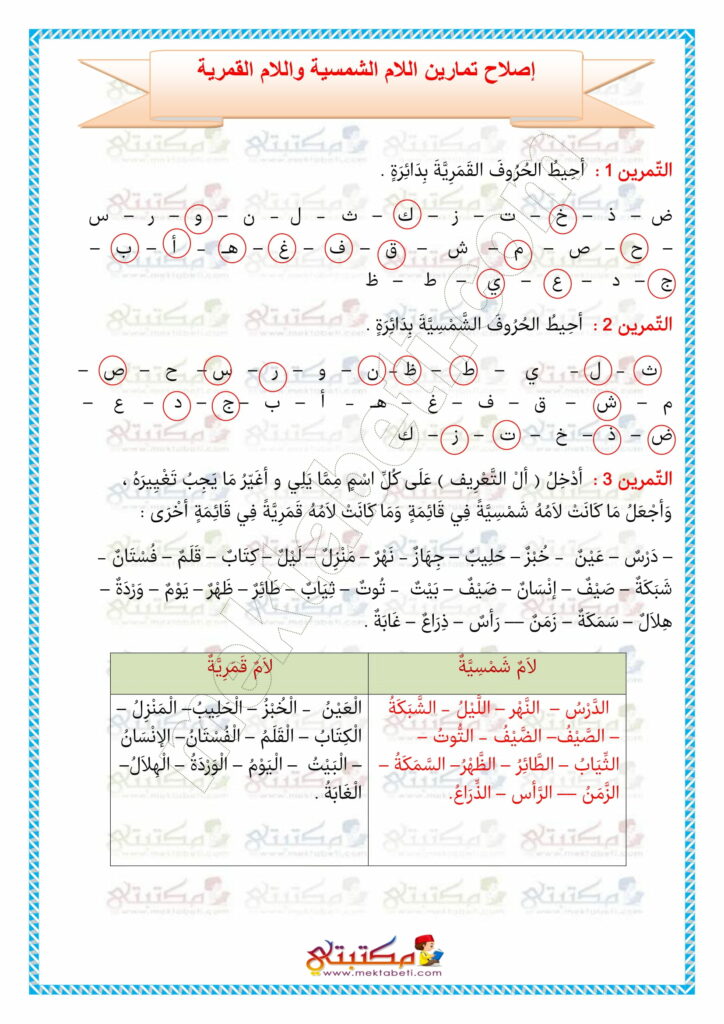 إصلاح تمارين اللام الشمسية واللام القمرية
التّمرين 1 : أحِيطُ الحُرُوفَ القَمَرِيَّةَ بِدَائِرَةٍ .
ض – ذ – خ – ت – ز – ك – ث – ل – ن – و – ر – س
– ح – ص – م – ش – ق – ف – غ – هـ – أ – ب –
ج – د – ع – ي – ط – ظ
التّمرين 2 : أحِيطُ الحُرُوفَ الشَّمْسِيَّةَ بِدَائِرَةٍ .
ث – ل – ي – ط – ظ – ن – و – ر – س – ح – ص –
م – ش – ق – ف – غ – هـ – أ – ب – ج – د – ع –
ض – ذ – خ – ت – ز – ك
التّمرين 3 : أدْخِلُ ( ألْ التَّعْرِيف ) عَلَى كُلِّ اسْمٍ مِمَّا يَلِي و أغَيّرُ مَا يَجِبُ تَغْيِيرَهُ ،
وَأجْعَلُ مَا كَانَتْ لاَمُهُ شَمْسِيَّةً فِي قَائِمَةٍ وَمَا كَانَتْ لاَمُهُ قَمَرِيَّةً فِي قَائِمَةٍ أخْرَى :
– دَرْسٌ – عَيْنٌ – خُبْزٌ – حَلِيبٌ – جِهَازٌ – نَهْرٌ – مَنْزِلٌ – لَيْلٌ – كِتَابٌ – قَلَمٌ – فُسْتَانٌ –
شَبَكَةٌ – صَيْفٌ – إنْسَانٌ – ضَيْفٌ – بَيْتٌ – تُوتٌ – ثِيَابٌ – طَائِرٌ – ظَهْرٌ – يَوْمٌ – وَرْدَةٌ –
هِلاَلٌ – سَمَكَةٌ – زَمَنٌ — رَأسٌ – ذِرَاعٌ – غَابَةٌ .
لاَمٌ شَمْسِيَّةٌ
الدَّرْسُ – النَّهْر – اللَّيْلُ – الشَّبَكَةُ
– الصَّيْفُ– الضَّيْفُ – التُّوتُ –
الثِّيَابُ – الطَّائِرُ – الظَّهْرُ– السَّمَكَةُ –
الزَّمَنُ — الرَّأس – الذِّرَاعُ.
لاَمٌ قَمَرِيَّةٌ
الْعَيْنُ – الْخُبْزُ – الْحَلِيبُ– الْمَنْزِلُ –
الْكِتَابُ – الْقَلَمُ – الْفُسْتَانُ– الإنْسَانُ
– الْبَيْتُ – الْيَوْمُ – الْوَرْدَةُ – الْهِلاَلُ–
الْغَابَةُ .
مكتبتي
www.mektabeti.com
mektabeti.com